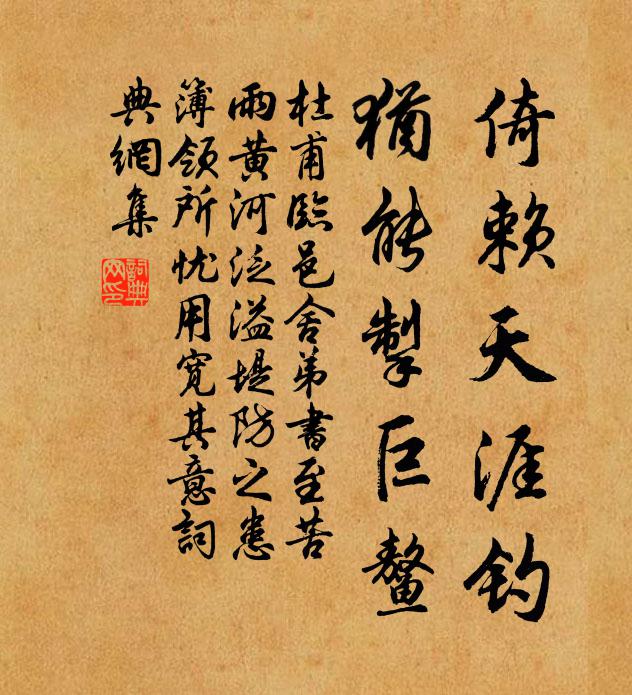 倚赖天涯钓
犹能掣巨鳌
杜甫臨邑舍弟書至苦
雨黄河泛溢堤防之患
簿领所忧用寬其意詞
典網集
詞典
网印